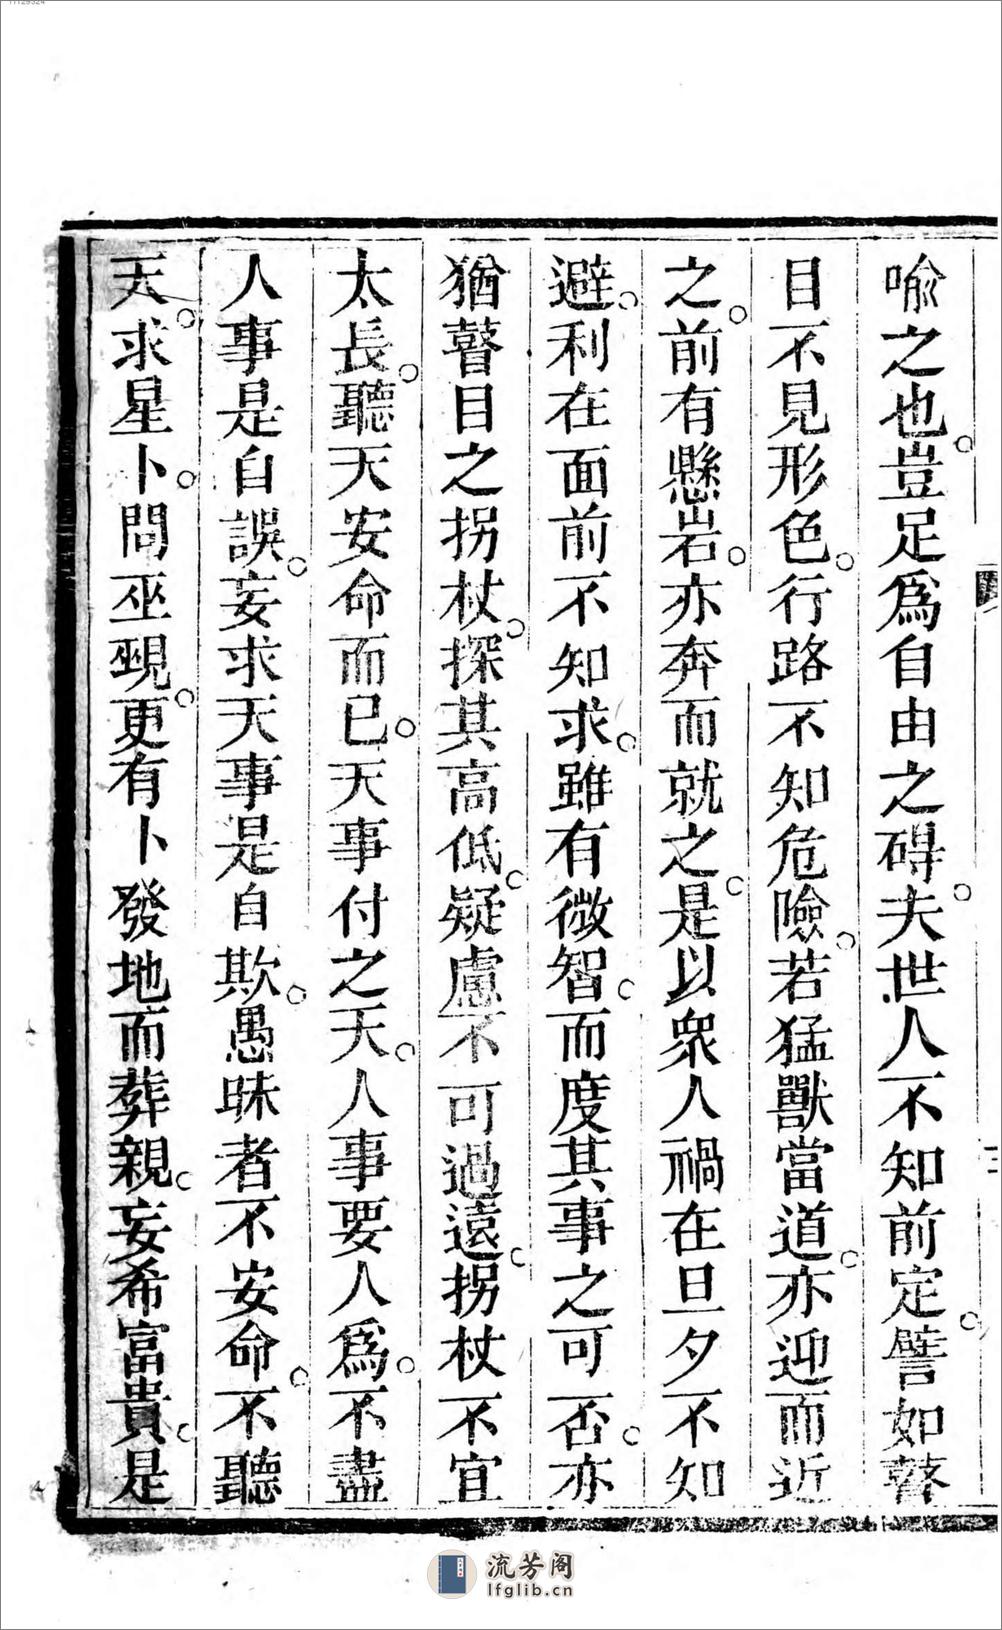 喻之也。豈足爲自由之碍。夫世人不知前定。譬如瞽
目不見形色。行路不知危險。若猛獸當道。亦迎而近
之。前有懸岩。亦奔而就之。是以衆人禍在旦夕不知
避。利在面前不知求。雖有微智。而度其事之可否。亦
猶瞽目之拐杖。探其高低。疑慮不可過遠。拐杖不宜
太長。聽天安命而已。天事付之天。人事要人爲。不盡
人事是自誤。妄求天事是自欺。愚昧者不安命。不聽
天。求星卜。問巫覡。更有卜發地而葬親。妄希富貴。是
流芳阁
lfglib.cn